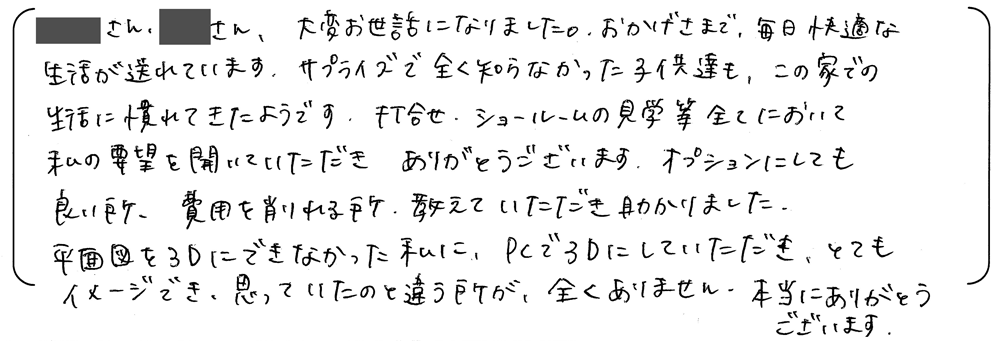 さん、さん、大変お世話になりました。おかげさまで、毎日快適な
生活が送れています。サプライズで全く知らなかった子供達も、この家での
生活に慣れてきたようです。打合せ、ショールームの見学等全てにおいて
私の要望を聞いていただき ありがとうございます。オプションにしても
良い所、費用を削れる所、教えていただき助かりました。
平面図を3Dにできなかった私に、PCで3Dにしていただき、とても
イメージでき、思っていたのと違う所が、全くありません。本当にありがとう
ございます。